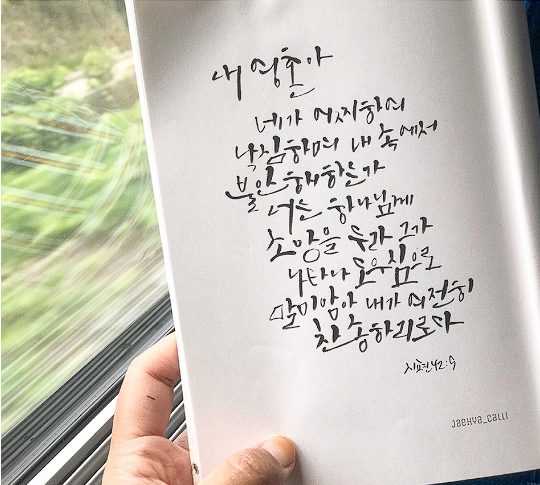 내 영혼아
네가 어찌하여
낙심하며 내 속에서
불안해하는가
너는 하나님께
소망을 두라 그가
나타나 도우심으로
말미암아 내가 여전히
찬송하리로다
시편 42:5
JaeHya_Calli